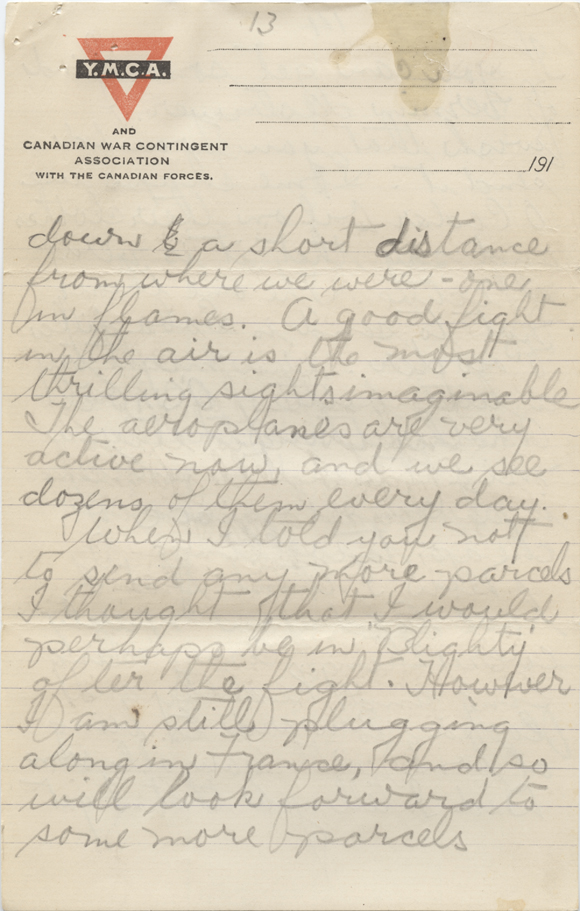 13
Y.M.C.A.
AND
CANADIAN WAR CONTINGENT
ASSOCIATION
WITH THE CANADIAN FORCES.
191
down a short distance
from where we were - one
in flames. A good fight
in the air is the most
thrilling sights imaginable
The aeroplanes are very
active now, and we see
dozens of them every day.
When I told you not
to send any more parcels
I thought that I would
perhaps be in "Blighty"
after the fight. However
I am still plugging
along in France, and so
will look forward to
some more parcels